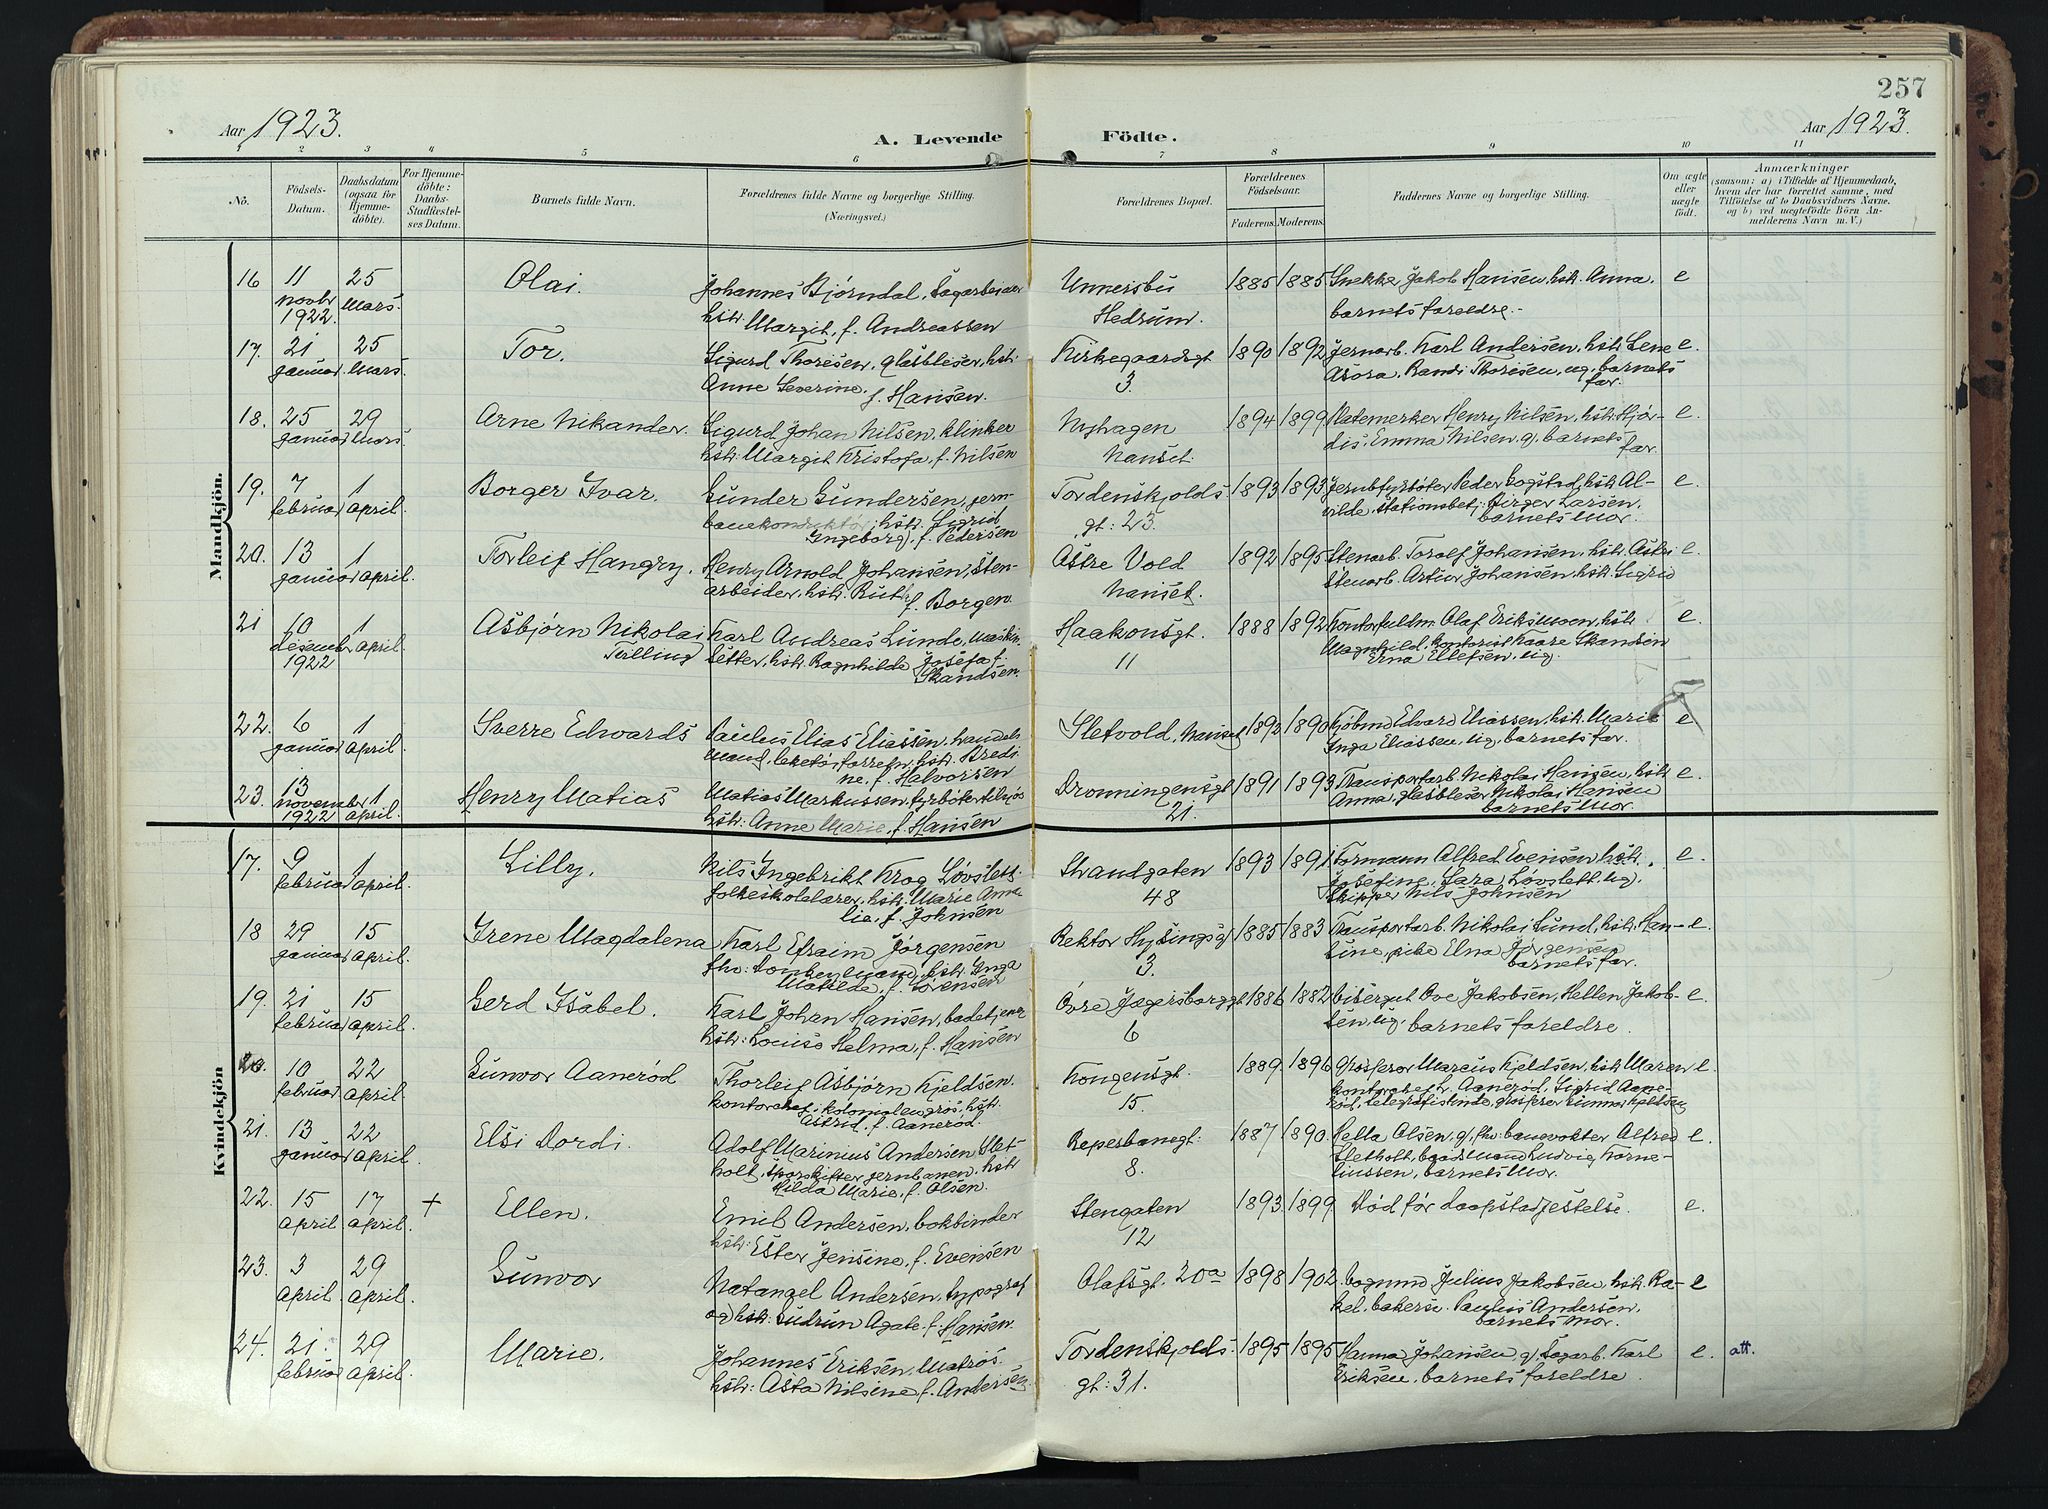 257
Aar 1923.
A. Levende Födte.
Aar 1923.
1 2 3 4 5 6 7 8 9 10 11
No.
Födsels-
Datum.
Daabsdatum
(ogsaa for
Hjemme-
döbte).
For Hjemme-
döbte:
Daabs-
Stadfæstel-
ses Datum.
Barnets fulde Navn.
Forældrenes fulde Navne og borgerlige Stilling.
(Næringsvei.)
Forældrenes Bopæl.
Forældrenes
Födselsaar.
Faderens. Moderens.
Faddernes Navne og borgerlige Stilling.
Om ægte
eller
uægte
födt.
Anmærkninger
(saasom: a) i Tilfælde af Hjemmedaab,
hvem der har forrettet samme, med
Tilföielse af to Daabsvidners Navne,
og b) ved uægtefödte Börn An-
melderens Navn m. V.)
Mandkjön.
16 11 25 Olai. Johannes Bjørndal, Sagarbeider Unnersbu 1885 1885 Snekker Jakob Hansen, hst. Anna, e
novbr Mars. hstr. Margit, f. Andreassen Hedrum. barnets foreldre.
1922.
17. 21 25 Tor. Sigurd Thoresen, glasblæser, hst: Kirkegaardsgt 1890 1892 Jernarb. Karl Andersen, hstr Lene e.
januar Mars. Anne Severine, f. Hansen. 3. Asora, Randi Thoresen, ug. barnets
far.
18. 25 29 Arne Nikander. Sigurd Johan Nilsen, klinker Nyhagen 1894 1899 Platemerker Henry Nilsen, hstr. Hjør- e.
januar Mars hstr: Margit Kristofa, f. Nilsen Nanset. dis, Emma Nilsen, g. barnets
far
19. 7 1 Borger Ivar. Gunder Gundersen, jern- Tordenskjolds 1893 1893 Jernbfyrbøter Peder Bogstad, hstr Al- e.
februar april. banekonduktør, hstr. Sigrid gt: 23. vilde, stationsbetj: Birger Larsen,
Ingeborg, f. Pedersen barnets mor.
20. 13 1 Torleif Hangry. Henry Arnold Johansen, sten- Østre Vold 1892 1895 Stenarb. Toralf Johansen, hstr. Astri e.
januar april. arbeider, hstr. Rut, f. Borgen. Nanset. Stenarb. Artur Johansen, hstr. Sigrid
21 10 1 Asbjørn Nikolai Karl Andreas Lunde, maskin Haakonsgt. 1888 1892 Kontorfuldm Olaf Eriksmoen, hstr e.
desember april. Tvilling setter, hstr. Ragnhilde Josefa f. 11 Magnhild, kontorist Kaare Skandsen
1922 Skandsen. Erna Ellefsen, ug.
22. 6 1 Sverre Edvards Paulus Elias Eliassen, handels Sletvold, Nanset 1892 1890 Edvard Eliassen, hstr. Marie e
januar april mand, f. Halvorsen Inga Eliassen, ug. barnets far.
23. 13 1 Henry Matias Matias Markussen, fyrbøter tilsjøs Dronningensgt 1891 1893 Transportarb. Nikolai Hansen, hstr e.
november april. hstr: Anne Marie, f. Hansen 21. Anna, glasblæser Nikolai Hansen
1922 barnets mor.
Kvindekjön
17. 9 1 Lilly. Nils Ingebrikt Krog Løvslett Strandgaten 1893 1891 Formann Alfred Evensen hstr. e.
februar april. folkeskolelærer, hstr. Marie Ama 48 Josefine, Sara Løvslett, ug.
lie, f. Johnsen Skipper Nils Johnsen
18 29 15 Irene Magdalena Karl Efraim Jørgensen Rektor Hysingsg 1885 1883 Transportarb. Nikolai Lund, hstr. Han- e.
januar april. fhv: Donkeymand, hstr. Inga 3. sine, pike Elna Jørgensen
Matilde, f. Sørensen barnets far.
19. 21 15 Gerd Isabel. Karl Johan Hansen, badetjener Øvre Jegersborggt 1886 1882 Ove Jakobsen, Hellen Jakob- e.
februar april hstr: Louise Helma, f. Hansen 6 sen, ug. barnets foreldre.
20. 10 22 Gunvor Aanerød Thorleif Asbjørn Kjeldsen. Kongensgt. 1889 1896 Grosserer Marcus Kjeldsen, hstr Maren e.
februar april. kontorchef, kolonialengros, hstr. 15. kontorchef Aanerød, Sigrid Aane-
Astrid, f. Aanerød. rød, telegrafistinde, grosserer Gunnar Kjeldsen
21. 13 22 Elsi Dordi. Adolf Marinius Andersen Slet- Reperbanegt: 1887 1890. Hella Olsen, g, fhv: banevokter Alfred e.
januar april. holt, sporskifter jernbanen, hstr 8. Sletholt, baadsmand Ludvig Korne-
Hilda Marie, f. Olsen. liussen, barnets mor.
22. 15 17 + Ellen. Emil Andersen, bokbinder Stengaten 1893 1899 Død før daapstadfestelse. e.
april april. hstr: Ester Jensine, f. Evensen 12
23. 3 29 Gunvor Natanael Andersen, typograf Olafsgt. 20a 1898 1902. Julius Jakobsen, hstr. Ra- e
april. april. og hstr. Gudrun Agate, f. Hansen. kel, bakersv. Paulus Andersen,
barnets mor.
24. 21 29 Marie. Johannes Eriksen, Matros. Tordenskjolds. 1895 1895 Hanna Johansen g, Sagarb. Karl e. att.
februar april. hstr: Asta Nilsine f. Andersen gt: 31. Eriksen, barnets foreldre.